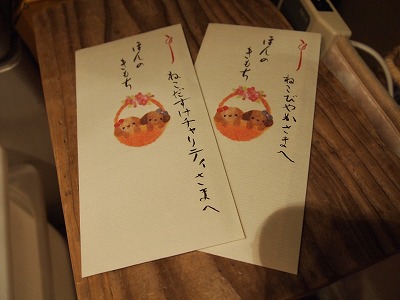 ほんの
きもち
ねこだすけチャリティさまへ
ほんの
きもち
ねこびやかさまへ